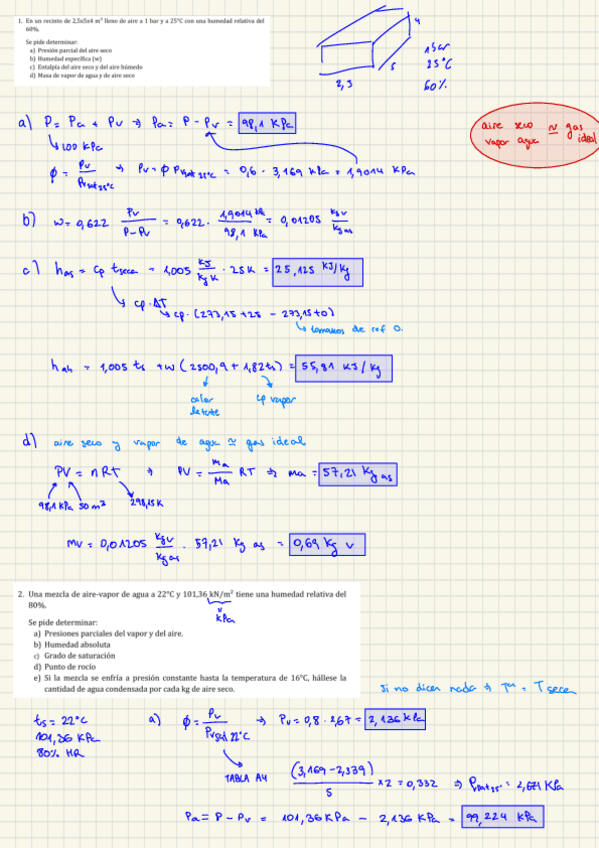 1. En un recinto de 2,5x5x4 m³ lleno de aire a 1 bar y a 25°C con una humedad relativa del
60%.
Se pide determinar:
a) Presión parcial del aire seco
b) Humedad específica (w)
c) Entalpía del aire seco y del aire húmedo
d) Masa de vapor de agua y de aire seco
4
5
2,5
1 bar
25°C
60%
a) P = Pa + Pv → Pa = P - Pv = 98,1 KPa
↳ 100 KPa
ϕ = Pv / Pvsat 25°C → Pv = ϕ Pvsat 25°C = 0,6 · 3,169 KPa = 1,9014 KPa
aire seco ≃ gas
vapor agua ideal
b) w = 0,622 Pv / P-Pv = 0,622 · 1,9014 KPa / 98,1 KPa = 0,01205 kg v / kg as
c) has = cp tseca = 1,005 KJ / kg K · 25 K = 25,125 KJ/kg
↳ cp · ΔT
↳ cp · (273,15 + 25 - 273,15 + 0)
↳ tomamos de ref 0.
hah = 1,005 ts + w (2500,9 + 1,82 ts) = 55,81 KJ/kg
calor
latente
cp vapor
d) aire seco y vapor de agua ≃ gas ideal
PV = nRT → PV = ma / Ma RT → ma = 57,21 kg as
98,1 KPa 50 m³ 298,15 K
mv = 0,01205 kg v / kg as · 57,21 kg as = 0,69 kg v
2. Una mezcla de aire-vapor de agua a 22°C y 101,36 kN/m² tiene una humedad relativa del
80%.
KPa
Se pide determinar:
a) Presiones parciales del vapor y del aire.
b) Humedad absoluta
c) Grado de saturación
d) Punto de rocío
e) Si la mezcla se enfría a presión constante hasta la temperatura de 16°C, hállese la
cantidad de agua condensada por cada kg de aire seco.
Si no dicen nada → Tª = T seca
ts = 22°C
101,36 KPa
80% HR
a) ϕ = Pv / Pvsat 22°C → Pv = 0,8 · 2,67 = 2,136 KPa
TABLA A4 (3,169 - 2,339) / 5 × 2 = 0,332 → Psat 22° = 2,671 KPa
Pa = P - Pv = 101,36 KPa - 2,136 KPa = 99,224 KPa